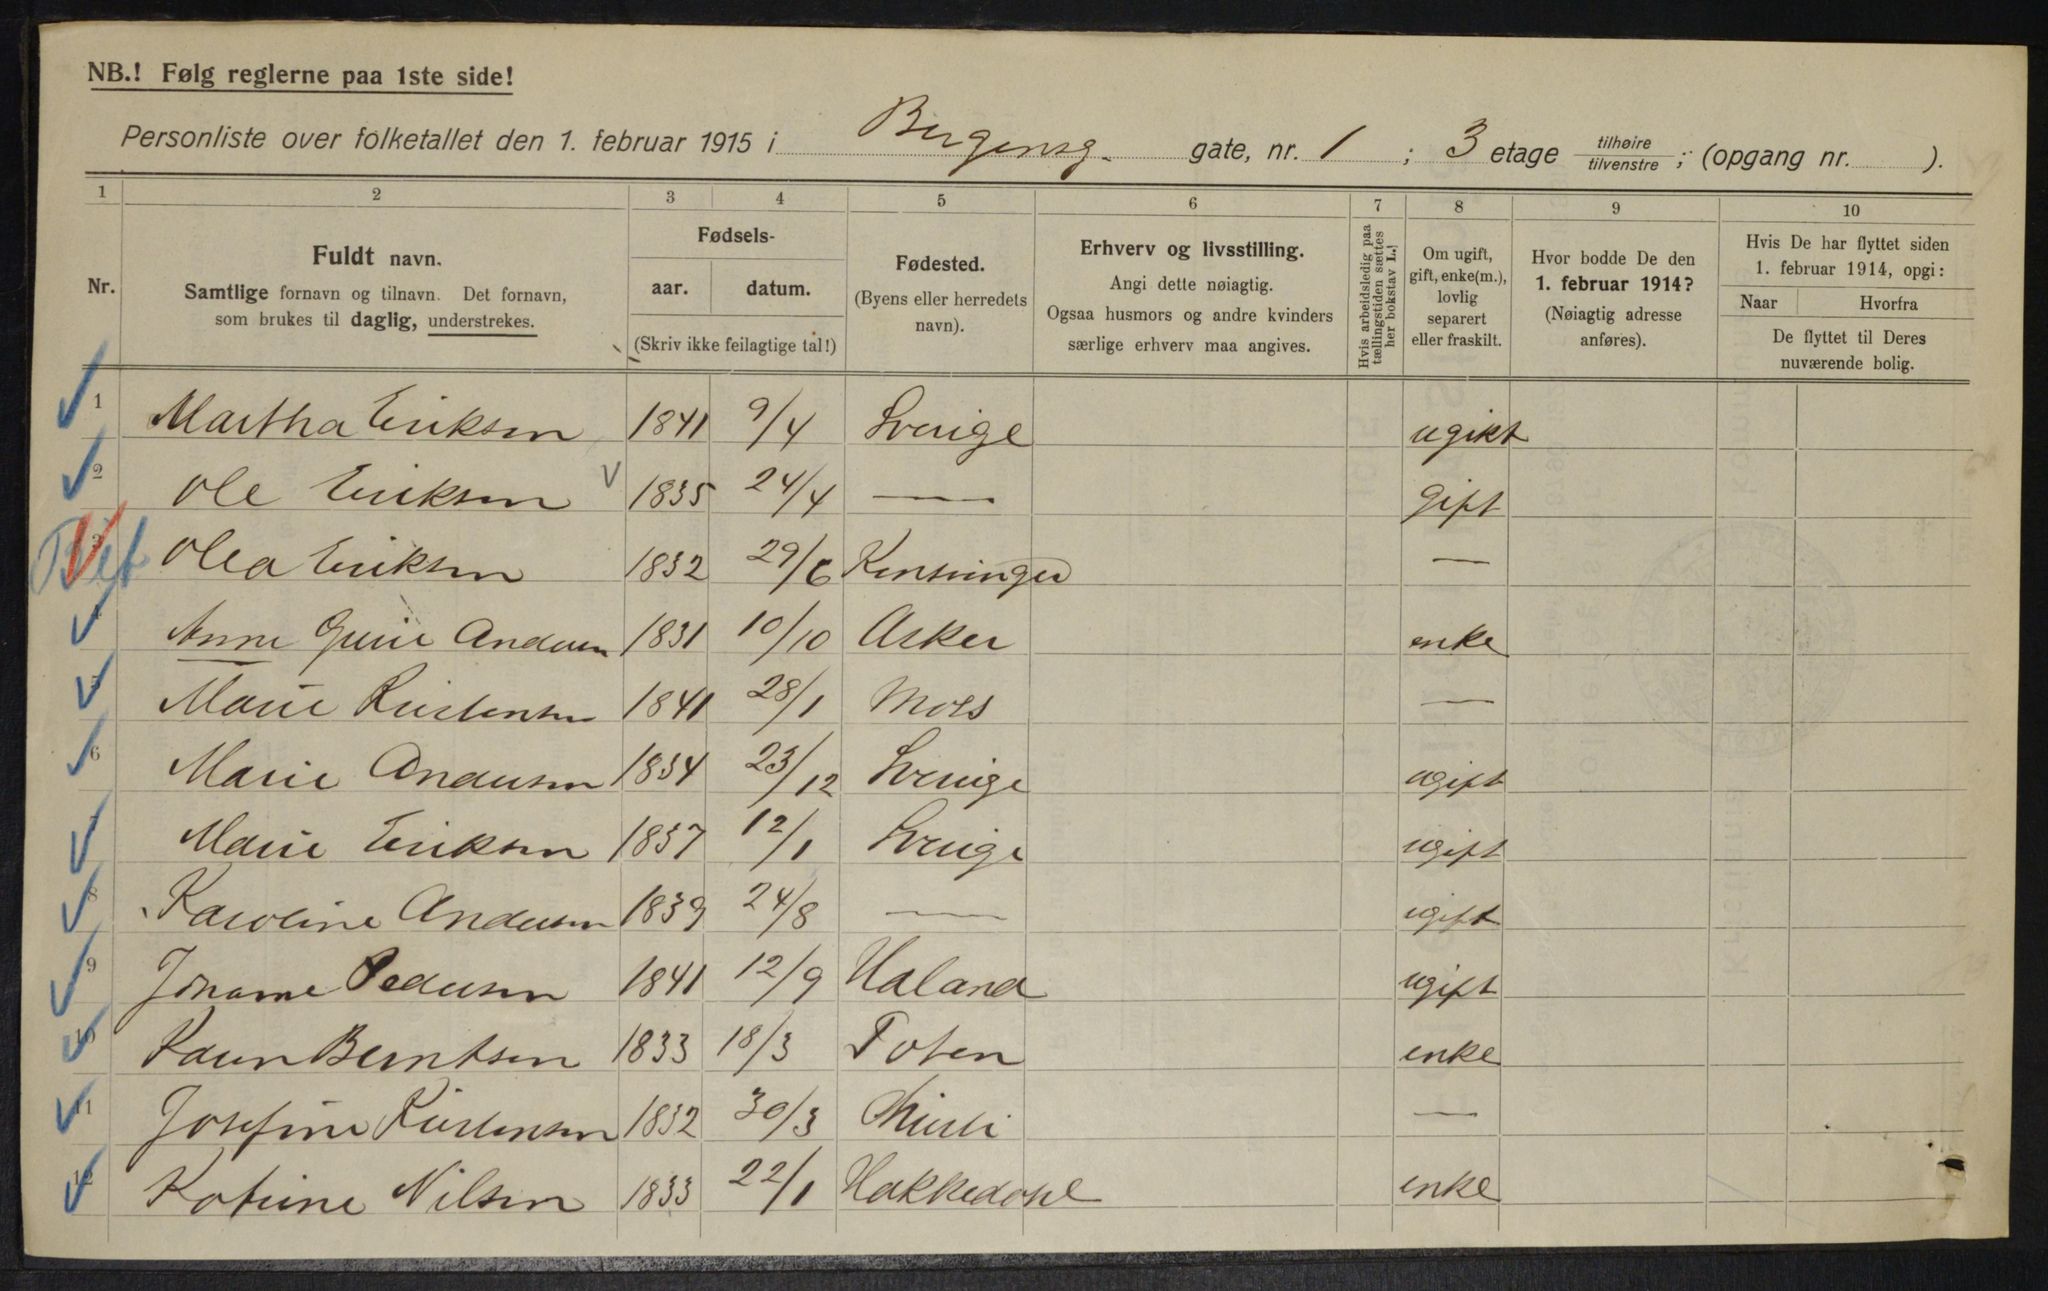 NB.! Følg reglerne paa 1ste side!
Personliste over folketallet den 1. februar 1915 i Bergensg. gate, nr. 1 ; 3 etage tilhøire/tilvenstre ; (opgang nr. ).
1 2 3 4 5 6 7 8 9 10
Nr.
Fuldt navn.
Samtlige fornavn og tilnavn. Det fornavn,
som brukes til daglig, understrekes.
Fødsels-
aar. datum.
(Skriv ikke feilagtige tal!)
Fødested.
(Byens eller herredets
navn).
Erhverv og livsstilling.
Angi dette nøiagtig.
Ogsaa husmors og andre kvinders
særlige erhverv maa angives.
Hvis arbeidsledig paa
tællingstiden sættes
her bokstav L.!
Om ugift,
gift, enke(m.),
lovlig
separert
eller fraskilt.
Hvor bodde De den
1. februar 1914?
(Nøiagtig adresse
anføres).
Hvis De har flyttet siden
1. februar 1914, opgi:
Naar Hvorfra
De flyttet til Deres
nuværende bolig.
1 Martha Eriksen 1841 9/4 Sverige ugikt
2 Ole Eriksen V 1835 24/4 — gift
3 Olea Eriksen 1832 29/6 Konsvinger —
4 Anne Gurie Andersen 1831 10/10 Asker enke
5 Marie Kristensen 1841 28/1 Mos —
6 Marie Andersen 1834 23/12 Sverige ugift
7 Marie Eriksen 1837 12/1 Sverige ugift
8 Karoline Andersen 1839 24/8 — ugift
9 Johanne Pedersen 1841 12/9 Haland ugift
10 Karen Berntsen 1833 18/3 Toten enke
11 Josefine Kristensen 1832 30/3 —
12 Katrine Nilsen 1833 22/1 Hakkedahl enke